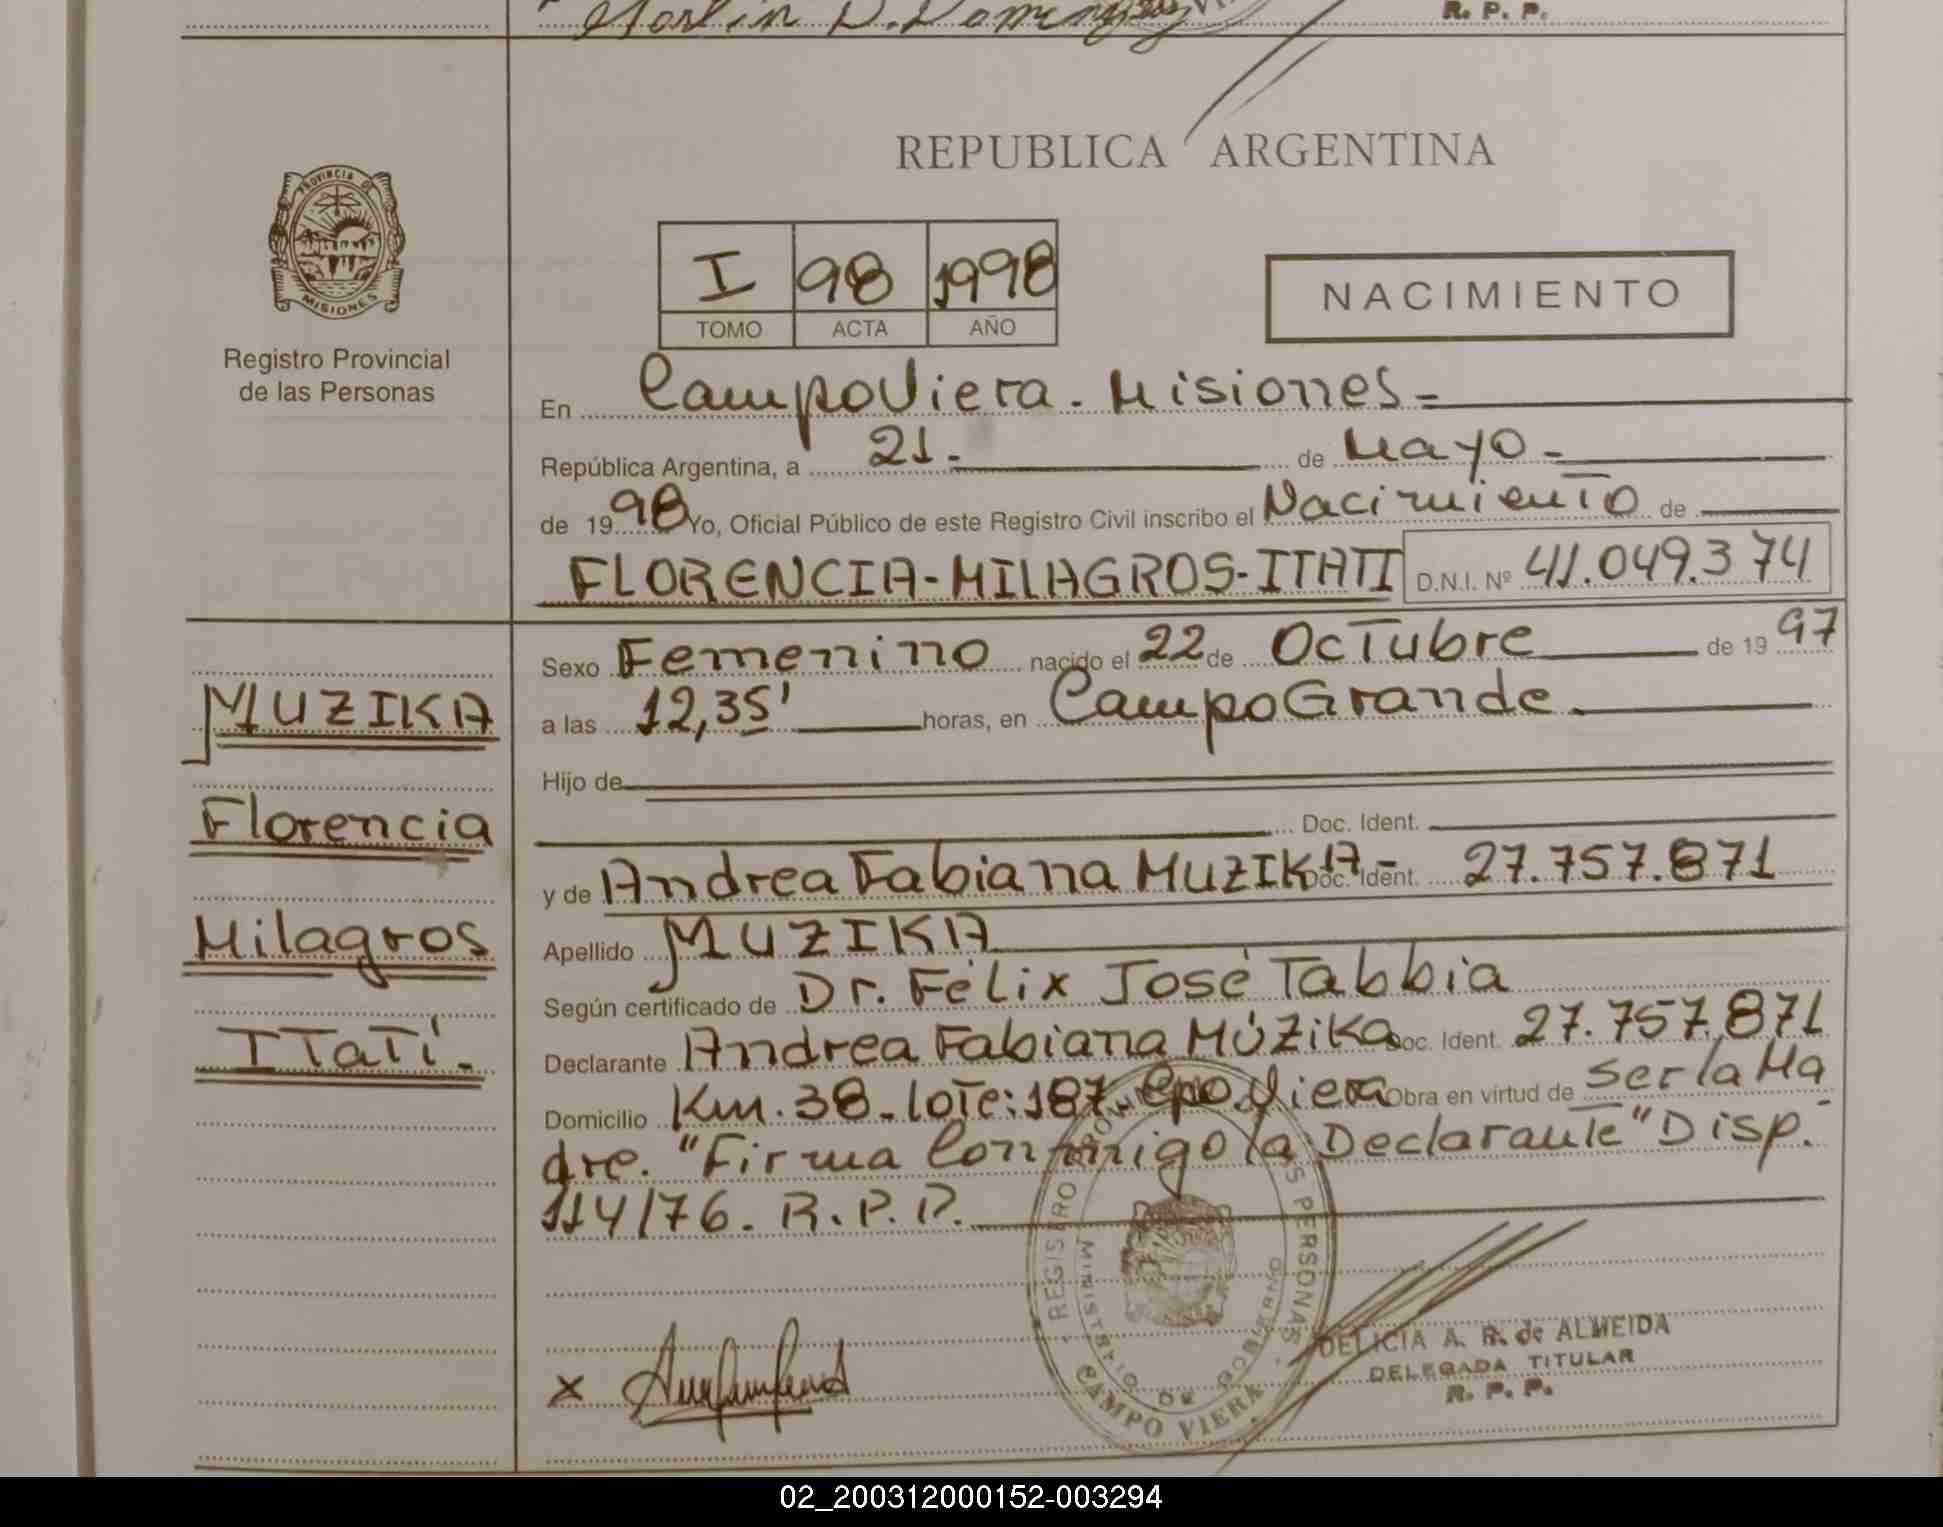 R. P. P.
REPUBLICA ARGENTINA
PROVINCIA DE
MISIONES
Registro Provincial
de las Personas
I 98 1998
TOMO ACTA AÑO
NACIMIENTO
En Campo Viera - Misiones -
República Argentina, a 21 - de Mayo -
de 1998 Yo, Oficial Público de este Registro Civil inscribo el Nacimiento de
FLORENCIA-MILAGROS-ITATI D.N.I. Nº 41.049.374
Sexo Femenino nacido el 22 de Octubre de 1997
a las 12,35' horas, en Campo Grande.
Hijo de
Doc. Ident.
y de Andrea Fabiana MUZIKA - Doc. Ident. 27.757.871
Apellido MUZIKA
Según certificado de Dr. Félix José Tabbia
Declarante Andrea Fabiana Múzika Doc. Ident. 27.757.871
Domicilio Km. 38 - lote: 187 - Cpo. Viera Obra en virtud de ser la Ma
dre. "Firma Conmigo la Declarante" Disp. -
114/76. R.P.P.
MUZIKA
Florencia
Milagros
ITatí -
REGISTRO PROVINCIAL DE LAS PERSONAS
MINISTERIO DE GOBIERNO
CAMPO VIERA
X
DELICIA A. R. de ALMEIDA
DELEGADA TITULAR
R. P. P.
02_200312000152-003294